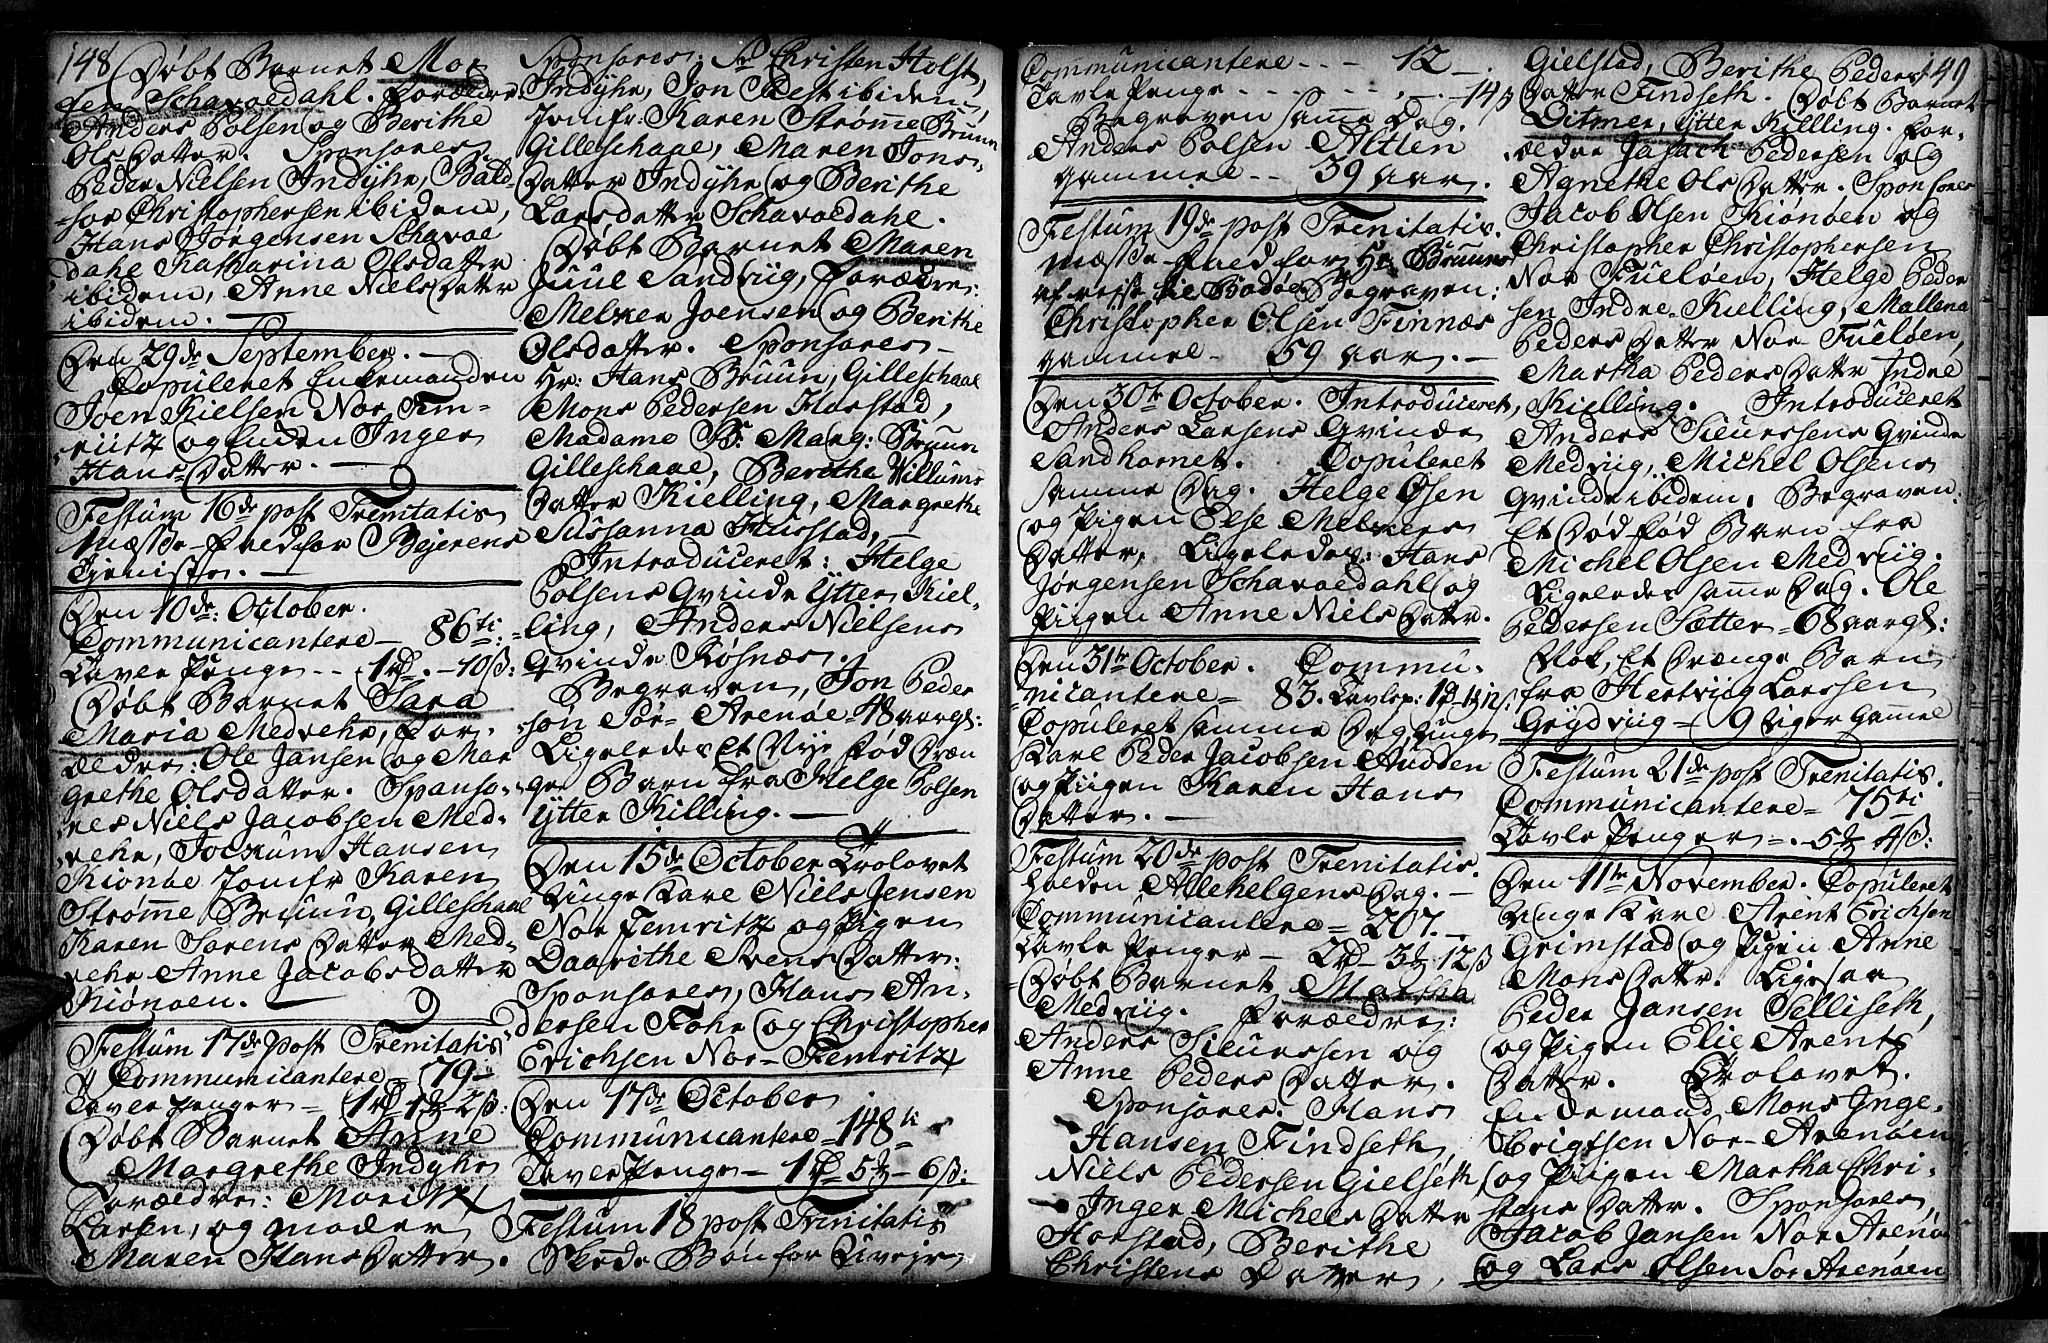 148
Døbt Barnet Mor
ten Schavoldahl. Forældre:
Anders Polsen og Berithe
Ols Datter. Sponsores
Peder Nielsen Indyhr, Bald-
sor Christophersen ibidem,
Hans Jørgensen Schavol
dahl Katharina Olsdatter
ibidem, Anne Niels Datter
ibidem.
Den 29de September.
Copuleret Enkemanden
Joen Kielsen Nor Fem-
riitz og Enken Inger
Hans Datter.
Festum 16de post Trenitatis
Mæsse-Fald for Bejerens
Tjeniste.
Den 10de October.
Communicantere - 86ti
Tavle Penge - 1rd. - 10ß:
Døbt Barnet Sara
Maria Medvehr, For-
ældre: Ole Jansen og Mar
grethe Olsdatter. Sponso-
res Niels Jacobsen Med-
vehr, Jockum Hansen
Kionøe Jomfr Karen
Strømme Bruun, Gilleschaal
Karen Sorens Datter Med-
vehr Anne Jacobsdatter
Kiønøen.
Festum 17de post Trenitatis
Communicantere - 79
Tavle Penger - 1rd 1 2ß:
Døbt Barnet Anne
Margrethe Indyhr
Forældre: Moritz
Larsen, og moder
Maren Hans Datter.
Sponsores: Sr Christen Holst,
Indyhr, Jon Pest ibidem,
Jomfr: Karen Strømme Bruun
Gilleschaal, Maren Jons
Datter Indyhr og Berithe
Larsdatter Schavoldahl.
Døbt Barnet Maren
Juul Sandviig, Forældre:
Melker Joensen og Berithe
Olsdatter. Sponsores
Hr: Hans Bruun, Gilleschaal
Mons Pedersen Horstad,
Madame Marg: Bruun
Gilleschaal, Beritha Villums
Datter Kielling, Margrethe
Susanna Husstad,
Introduceret: Helge
Polsens Qvinde Ytter Kiel-
ling, Anders Nielsens
Qvinde Kosnæs.
Begraven, Jon Peder
søn Sør-Arenøe 48 aar gl:
Ligeledes Et Nye Fød Dræn
ge Barn fra Helge Polsen
Ytter Killing.
Den 15de October Trolovet
Unge Karl Niels Jensen
Nor Femritz og Pigen
Daarithe Svens Datter:
Sponsores, Hans An-
dersen Fohr og Christopher
Erichsen Nor-Femritz
Den 17de October
Communicantere 148ti
Tavle Penge - 1rd 5 - 6ß:
Festum 18 post Trinitatis
Skedde Bøn for Livejes
Communicantere - - - 12
Tavle Penge - - - - - - 14ß
Begraven samme Dag.
Anders Polsen Altlen
gammel - - 39 aar.
Festum 19de post Trenitatis.
Mæsse-Fald for Hr. Bruuns
afrejse til Bodøe Begraven:
Christopher Olsen Finnæs
gammel - 59 aar.
Den 30te October. Introduceret
Anders Larsens Qvinde
Sandhornet. Copuleret
samme Dag. Helge Olsen
og Pigen Else Melkers
Datter, Ligeledes: Hans
Jørgensen Schavoldahl og
Piigen Anne Niels Datter.
Den 31te October. Commu-
nicantere - 83. Tavlep:
Copuleret samme Dag Unge
Karl Peder Jacobsen Audden
og Piigen Karen Hans
Datter.
Festum 20de post Trenitatis.
holden Allehelgens Dag.
Communicantere - 207.
Tavle Penger - 2rd - 3 12ß
Døbt Barnet Martha
Medviig. Forældre:
Anders Siurssen og
Anne Peders Datter.
Sponsores. Hans
Hansen Findseth,
Niels Pedersen Gielseth
Inger Michels Datter
Horstad, Berithe
Christens Datter,
149
Gielstad, Berithe Peders
Datter Findseth. Døbt Barnet
Ditmer, Ytter Kielling. For-
ældre Jasach Pedersen og
Agnethe Ols Datter. Sponsores
Jacob Olsen Kiønøen og
Christopher Christophersen
Nor Fugløen, Helge Peder
sen Indre-Kielling, Mallena
Peders Datter Nor Fugløen,
Martha Peders Datter Indre
Kielling. Introduceret
Anders Siurssens Qvinde
Medviig, Michel Olsens
Qvinde ibidem. Begraven:
Et Død Fød Barn fra
Michel Olsen Medviig.
Ligeledes samme Dag. Ole
Pedersen Sætter - 68 aar gl:
Nok, Et Drænge Barn
fra Hertviig Larssen
Grydviig - 9 Uger Gammel
Festum 21de post Trenitatis.
Communicantere - 75ti
Tavle Penger - 5 4ß:
Den 11te November. Copuleret
Unge Karl Arent Erichsen
Grimstad og Pigen Anne
Mons Datter. Ligesaa
Peder Jansen Selliseth,
og Pigen Elie Arents
Datter. Trolovet.
Enckemand Mons Inge-
brigtsen Nor-Arenøen
og Piigen Martha Chri-
stens Datter. Sponsores,
Jacob Jansen Nor Arenøe
og Lars Olsen Sør Arenøen